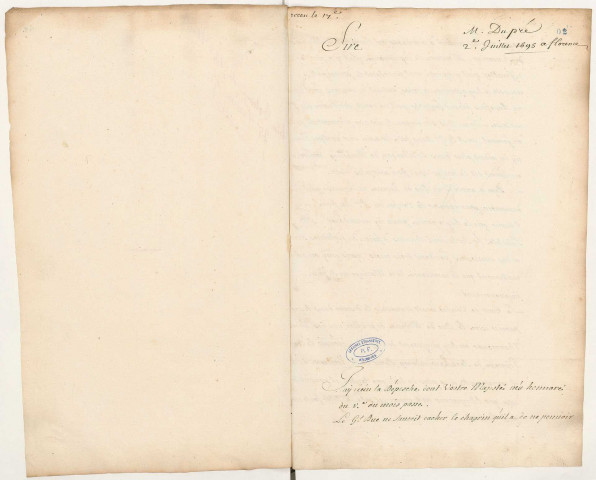 receu le 17.e
M. Dupré
2.e Juillet 1695 a florence
Sire
R.F.
J'ay receu la dépesche dont Vostre Majesté m'a honnoré
du 1.er du mois passé.
Le G.d Duc ne scauroit cacher le chagrin qu'il a de ne pouvoir